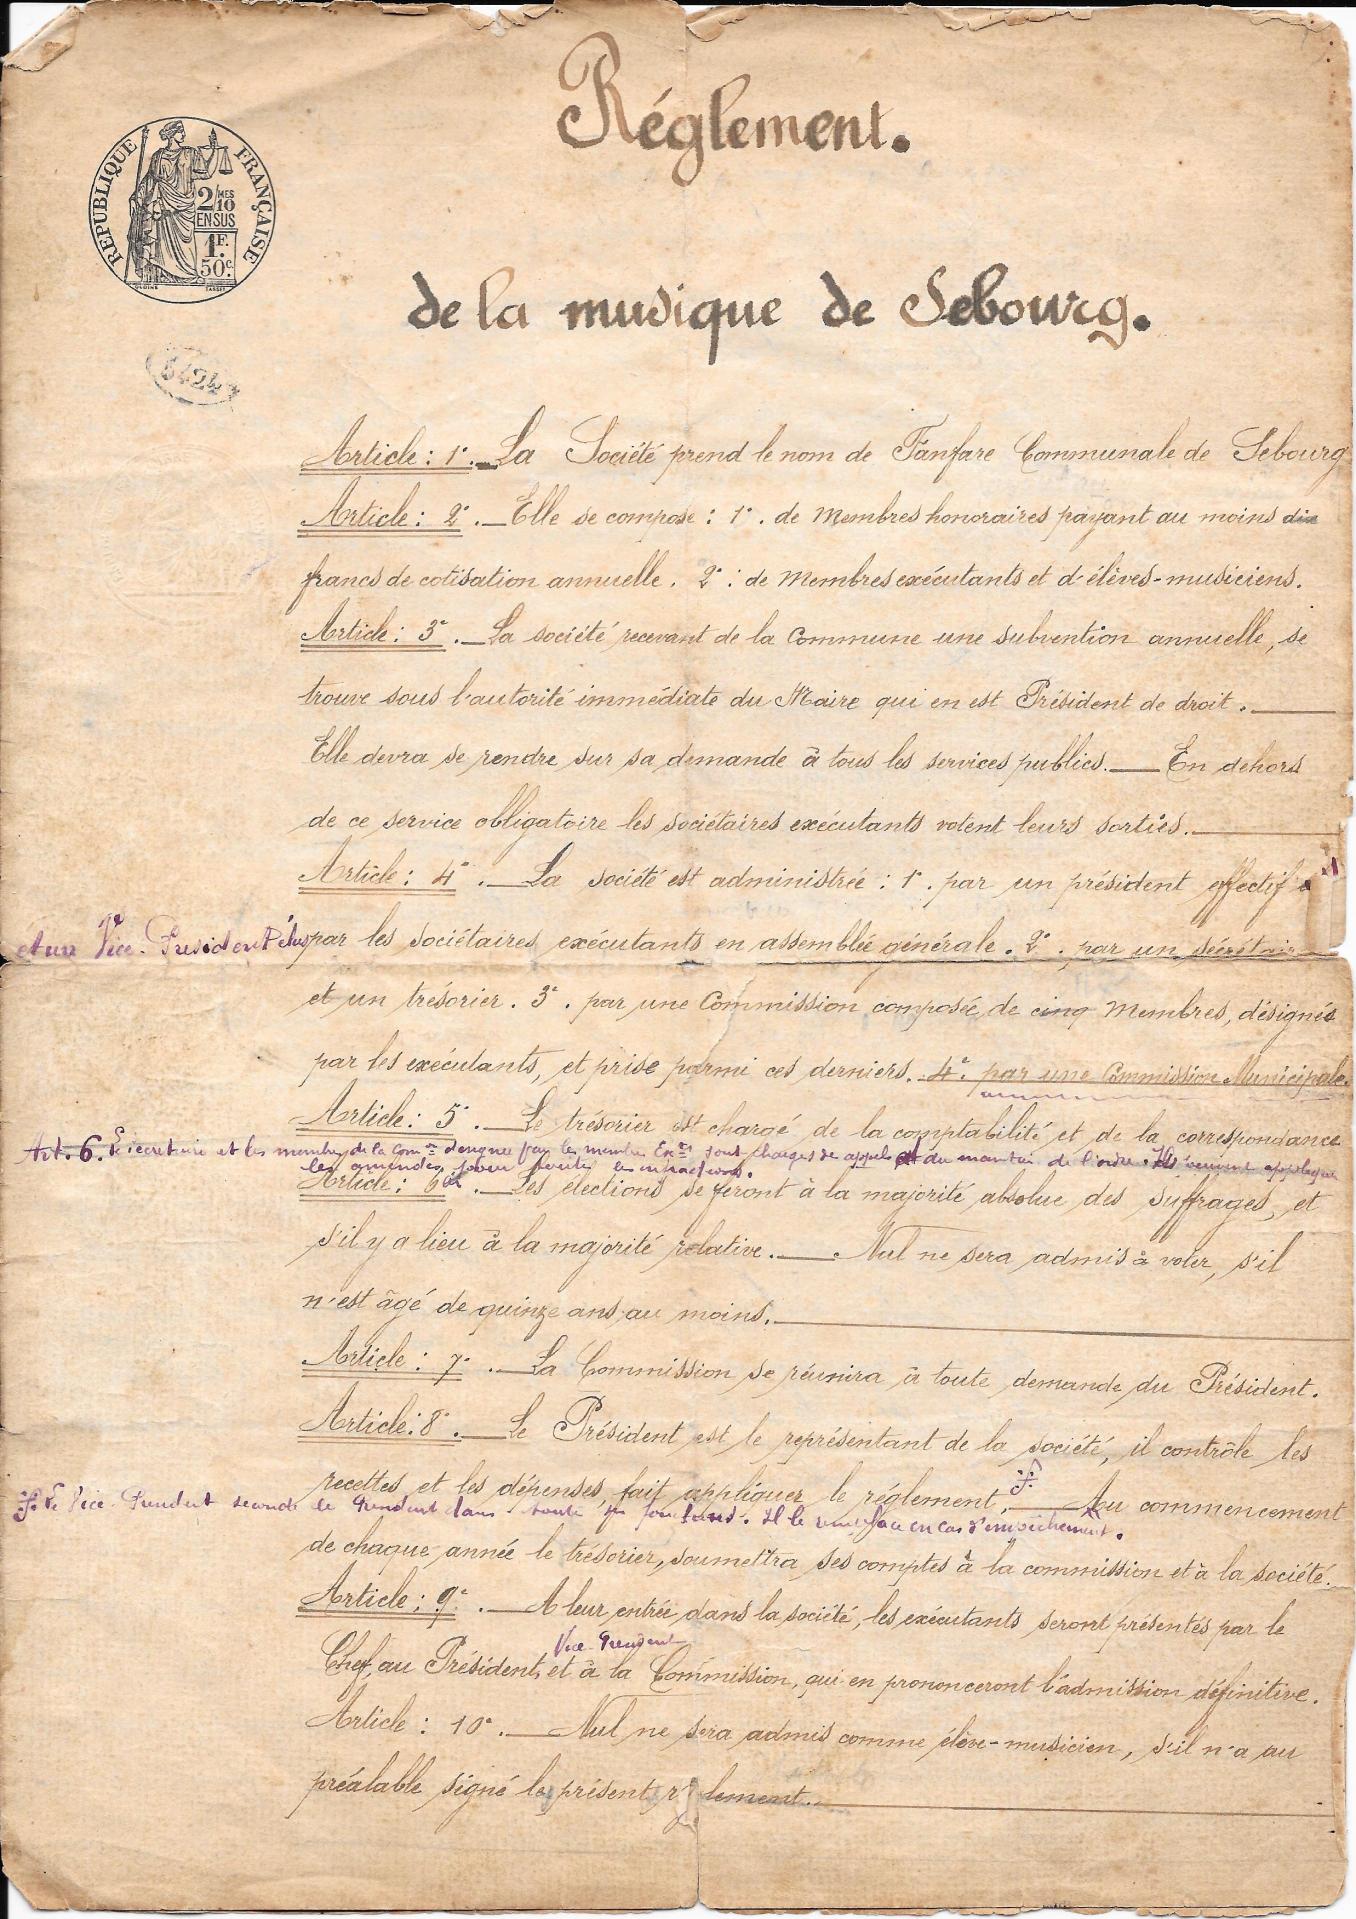 Réglement.
REPUBLIQUE FRANÇAISE
2/MES
10
EN SUS
1F.
50c.
de la musique de Sebourg.
5424
Article : 1°. La Société prend le nom de Fanfare Communale de Sebourg
Article : 2°. Elle se compose : 1°. de Membres honoraires payant au moins dix
francs de cotisation annuelle. 2° : de Membres exécutants et d'élèves-musiciens.
Article : 3°. La société recevant de la Commune une subvention annuelle, se
trouve sous l'autorité immédiate du Maire qui en est Président de droit.
Elle devra se rendre sur sa demande à tous les services publics. En dehors
de ce service obligatoire les sociétaires exécutants votent leurs sorties.
Article : 4°. La société est administrée : 1°. par un président effectif
et un Vice-President élus par les sociétaires exécutants en assemblée générale. 2°. par un secrétaire
et un trésorier. 3°. par une Commission composée de cinq Membres, désignés
par les exécutants, et prise parmi ces derniers. 4°. par une Commission Municipale.
Article : 5°. Le trésorier est chargé de la comptabilité et de la correspondance
Art. 6. Le secretaire et les membres de la Com.on désignée par les membres Ex.ts sont chargés de appel et du maintien de l'ordre. Ils peuvent appliquer
les amendes pour toute les infractions.
Article : 6°. Les élections se feront à la majorité absolue des suffrages, et
s'il y a lieu à la majorité relative. Nul ne sera admis à voter, s'il
n'est âgé de quinze ans au moins.
Article : 7°. La Commission se réunira à toute demande du Président.
Article : 8°. Le Président est le représentant de la société, il contrôle les
recettes et les dépenses, fait appliquer le réglement. Au commencement
Le Vice-President seconde le President dans toute ses fonctions. Il le remplace en cas d'empêchement.
de chaque année le trésorier, soumettra ses comptes à la commission et à la société.
Article : 9°. A leur entrée dans la société, les exécutants seront présentés par le
Vice-President
Chef, au Président, et à la Commission, qui en prononceront l'admission définitive.
Article : 10°. Nul ne sera admis comme élève-musicien, s'il n'a au
préalable signé le présent réglement.